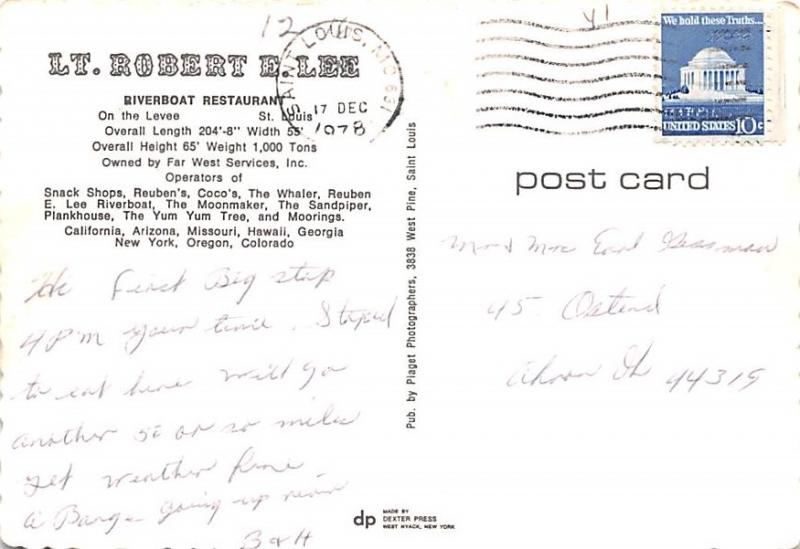 12
LT. ROBERT E. LEE
RIVERBOAT RESTAURANT
On the Levee St. Louis
Overall Length 204'-8" Width 55'
Overall Height 65' Weight 1,000 Tons
Owned by Far West Services, Inc.
Operators of
Snack Shops, Reuben's, Coco's, The Whaler, Reuben
E. Lee Riverboat, The Moonmaker, The Sandpiper,
Plankhouse, The Yum Yum Tree, and Moorings.
California, Arizona, Missouri, Hawaii, Georgia
New York, Oregon, Colorado
First Big stop
4 PM your time. Stoped
to eat here will go
another 50 or so miles
yet weather fine
a Barge going up river
B & H
SAINT LOUIS, MO 631
17 DEC
1978
Pub. by Piaget Photographers, 3838 West Pine, Saint Louis
dp
MADE BY
DEXTER PRESS
WEST NYACK, NEW YORK
We hold these Truths...
UNITED STATES 10c
post card
Mr & Mrs Earl
95 Ostend
Akron Oh 44319